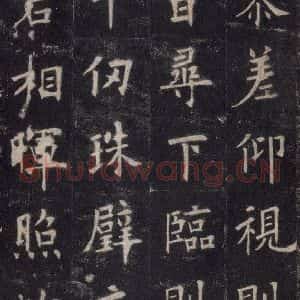 參差仰視則
百尋下臨則
千仞珠璧交
碧相暉照
Shufawang.CN